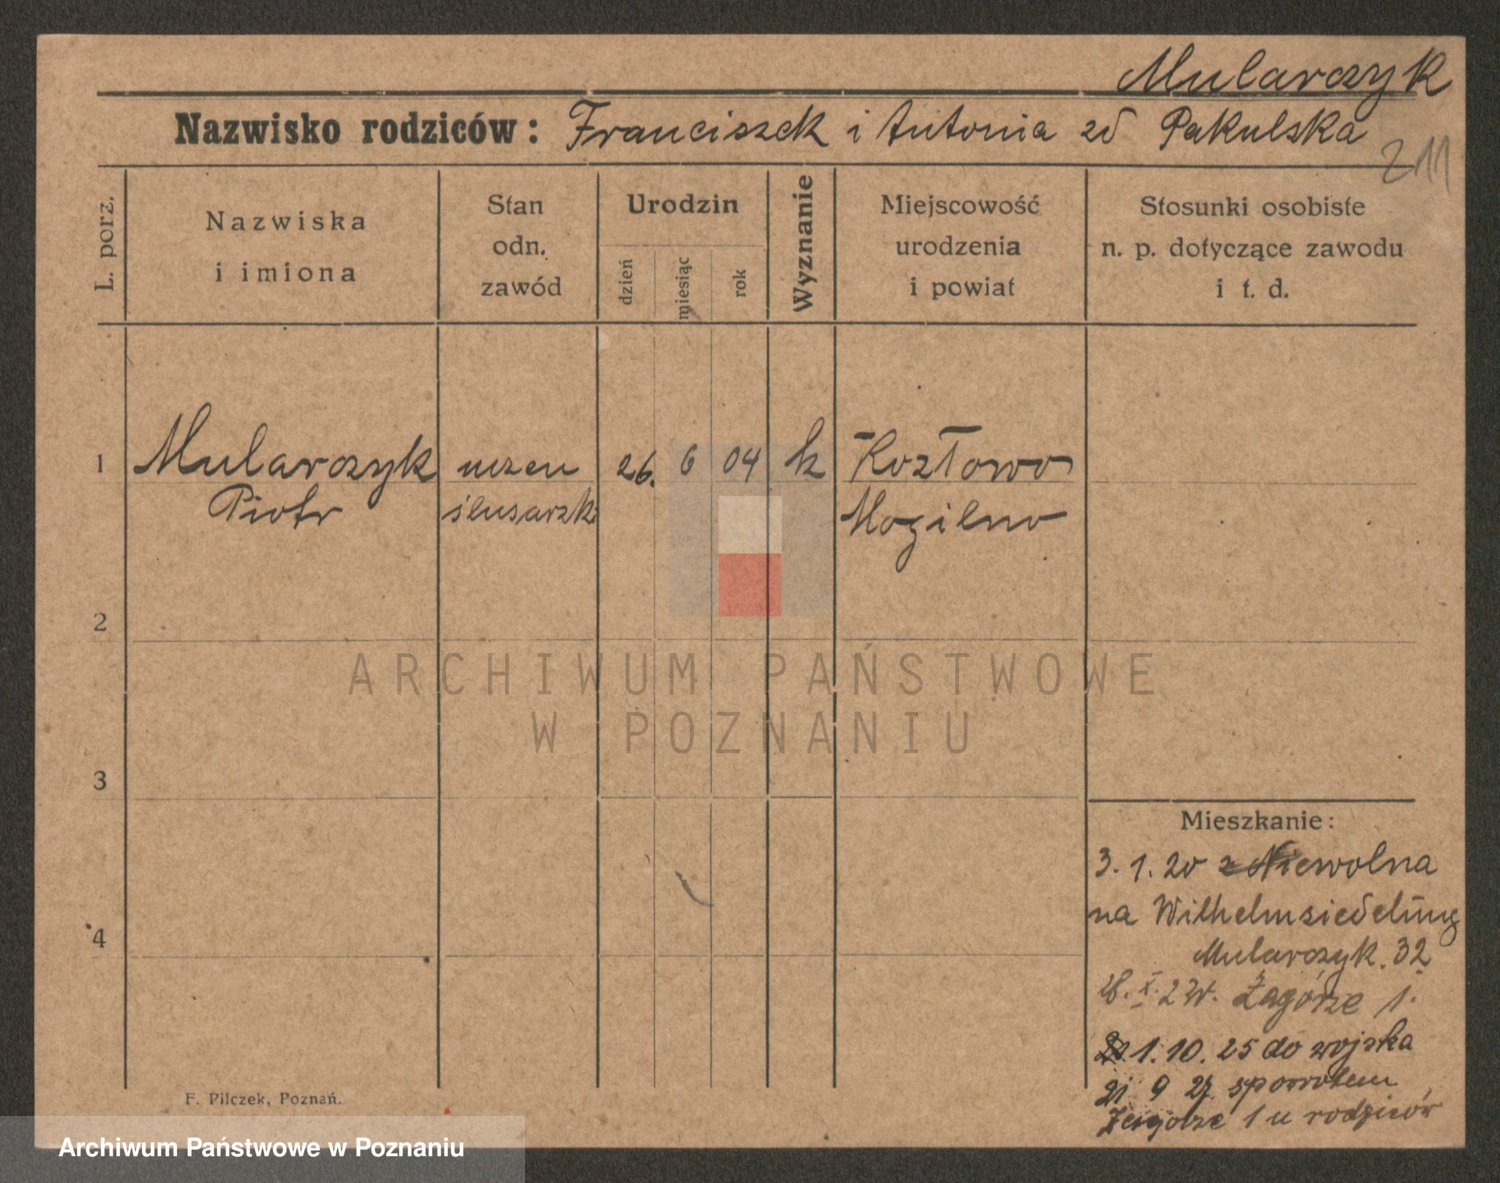 Mularczyk
Nazwisko rodziców: Franciszek i Antonia zd Pakulska
211
L. porz.
Nazwiska
i imiona
Stan
odn.
zawód
Urodzin
dzień
miesiąc
rok
Wyznanie
Miejscowość
urodzenia
i powiat
Stosunki osobiste
n. p. dotyczące zawodu
i t. d.
1 Mularczyk uczeń 26. 6 04 k Kozłowo
Piotr ślusarsk. Mogilno
2
ARCHIWUM PAŃSTWOWE
W POZNANIU
3
Mieszkanie:
3. 1. 20 z Niewolna
na Wilhelmsiedelung
4
Mularczyk. 32
X. Zagórze 1.
1. 10. 25 do wojska
21 9 27. spowrotem
Zagórze 1 u rodziców
F. Pilczek, Poznań.
Archiwum Państwowe w Poznaniu